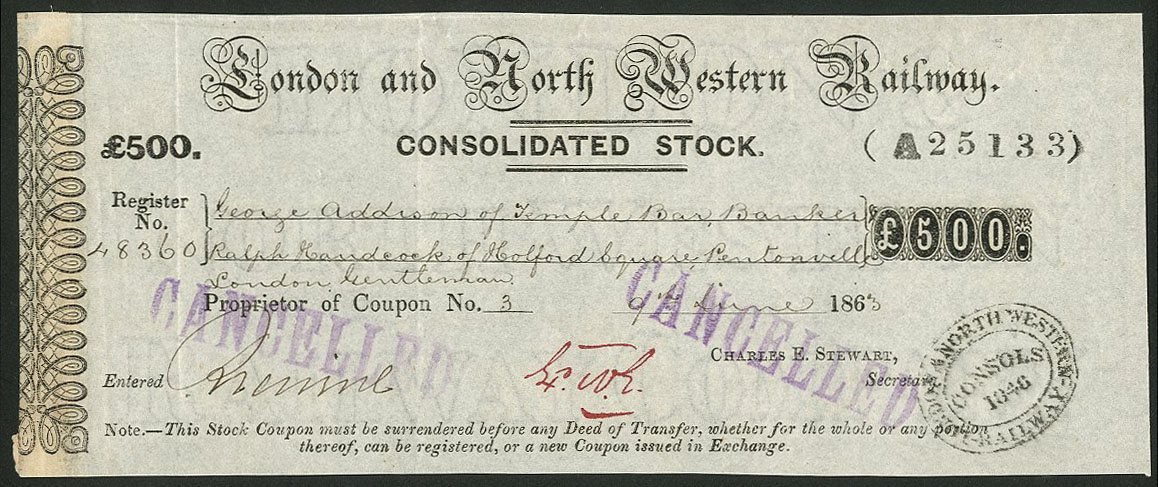 London and North Western Railway.
£500. CONSOLIDATED STOCK. (A25133)
Register No. 48360
George Addison of Temple Bar, Banker
Ralph Handcock, of Holford Square, Pentonville
London, Gentleman
£500.
Proprietor of Coupon No. 3 9th June 1863
CANCELLED
CANCELLED
CHARLES E. STEWART,
Entered Secretary.
LONDON & NORTH WESTERN RAILWAY
CONSOLS
1846
Note.—This Stock Coupon must be surrendered before any Deed of Transfer, whether for the whole or any portion
thereof, can be registered, or a new Coupon issued in Exchange.